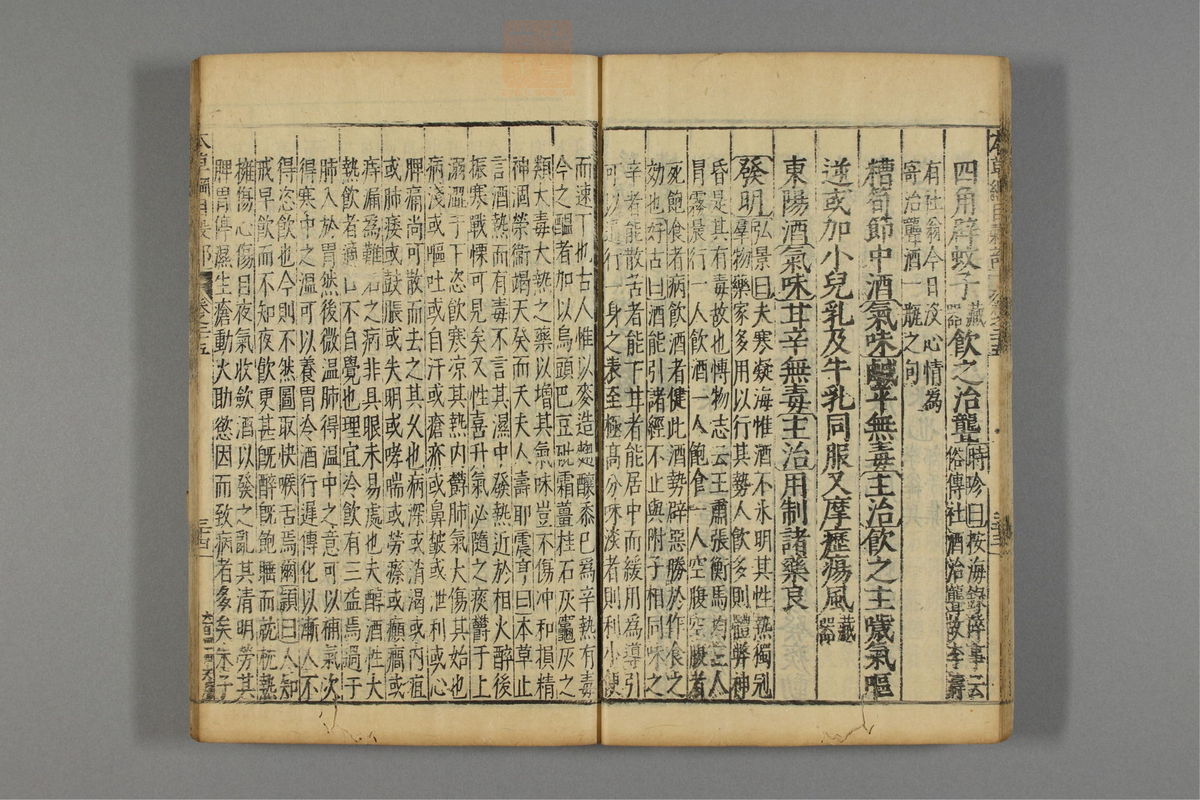 四角辟蚊子藏器飲之治聾時珍曰按海錄碎事云俗傳社酒治聾故李濤
有社翁今日沒心情為寄治聾酒一瓶之句
糟筍節中酒氣味鹹平無毒主治飲之主噦氣嘔
逆或加小兒乳及牛乳同服又摩癧瘍風藏器
東陽酒氣味甘辛無毒主治用制諸藥良
發明弘景曰大寒凝海惟酒不氷明其性熱獨冠
羣物藥家多用以行其勢人飲多則體弊神
昏是其有毒故也博物志云王肅張衡馬均三人
冒霧晨行一人飲酒一人飽食一人空腹空腹者
死飽食者病飲酒者健此酒勢辟惡勝於作食之
効也好古曰酒能引諸經不止與附子相同味之
辛者能散苦者能下甘者能居中而緩用為導引
可以通行一身之表至極高分味淡者則利小便
而速下也古人惟以麥造麴釀黍巴為辛熱有毒
今之醞者加以烏頭巴豆砒霜薑桂石灰竈灰之
類大毒大熱之藥以增其氣味豈不傷冲和損精
神涸榮衞竭天癸而夭夫人壽耶震亨曰本草止
言酒熱而有毒不言其濕中發熱近於相火醉後
振寒戰慄可見矣又性喜升氣必隨之痰欝于上
溺澀于下恣飲寒凉其熱內欝肺氣大傷其始也
病淺或嘔吐或自汗或瘡疥或鼻皶或泄利或心
脾痛尚可散而去之其久也病深或消渴或內疽
或肺痿或鼓脹或失明或哮喘或勞瘵或癲癎或
痔漏為難名之病非具眼未易處也夫醇酒性大
熱飲者適口不自覺也理宜冷飲有三益焉過于
肺入於胃然後微温肺得温中之意可以補氣次
得寒中之温可以養胃冷酒行遲傳化以漸人不
得恣飲也今則不然圖取快喉舌焉爾頴曰人知
戒早飲而不知夜飲更甚旣醉旣飽睡而就枕熱
擁傷心傷目夜氣收歛酒以發之亂其清明勞其
脾胃停濕生瘡動火助慾因而致病者多矣朱子